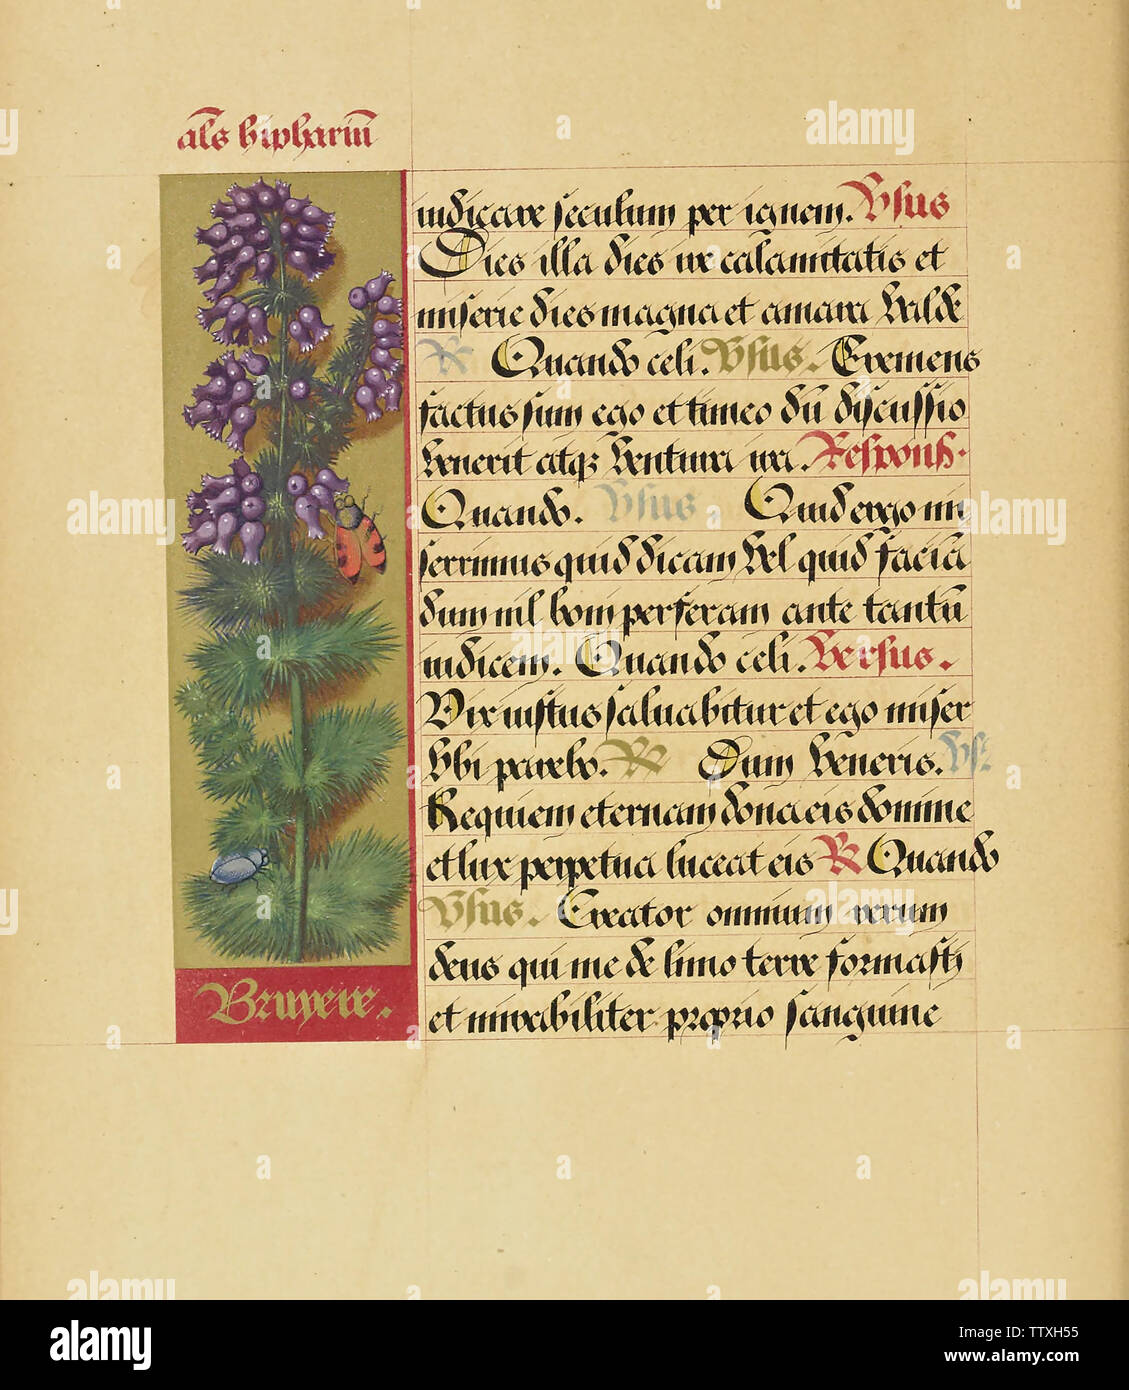 al̅s hiphariu̅
iudicare seculum per ignem. Vsus
Dies illa dies ire calamitatis et
miserie dies magna et amara valde
R Quando celi. Vsus. Tremens
factus sum ego et timeo du̅ discussio
venerit atqꝫ ventura ira. Respons.
Quando. Vsus Quid ergo mi
serrimus quid dicam vel quid facia
dum nil boni perferam ante tantu̅
iudicem. Quando celi. Versus.
Vix iustus saluabitur et ego miser
vbi parebo. R Dum veneris. Vs.
Requiem eternam dona eis domine
et lux perpetua luceat eis R Quando
Vsus. Creator omnium rerum
deus qui me de limo terre formasti
et mirabiliter proprio sanguine
Bruyere.
alamy
Image ID: TTXH55
www.alamy.com